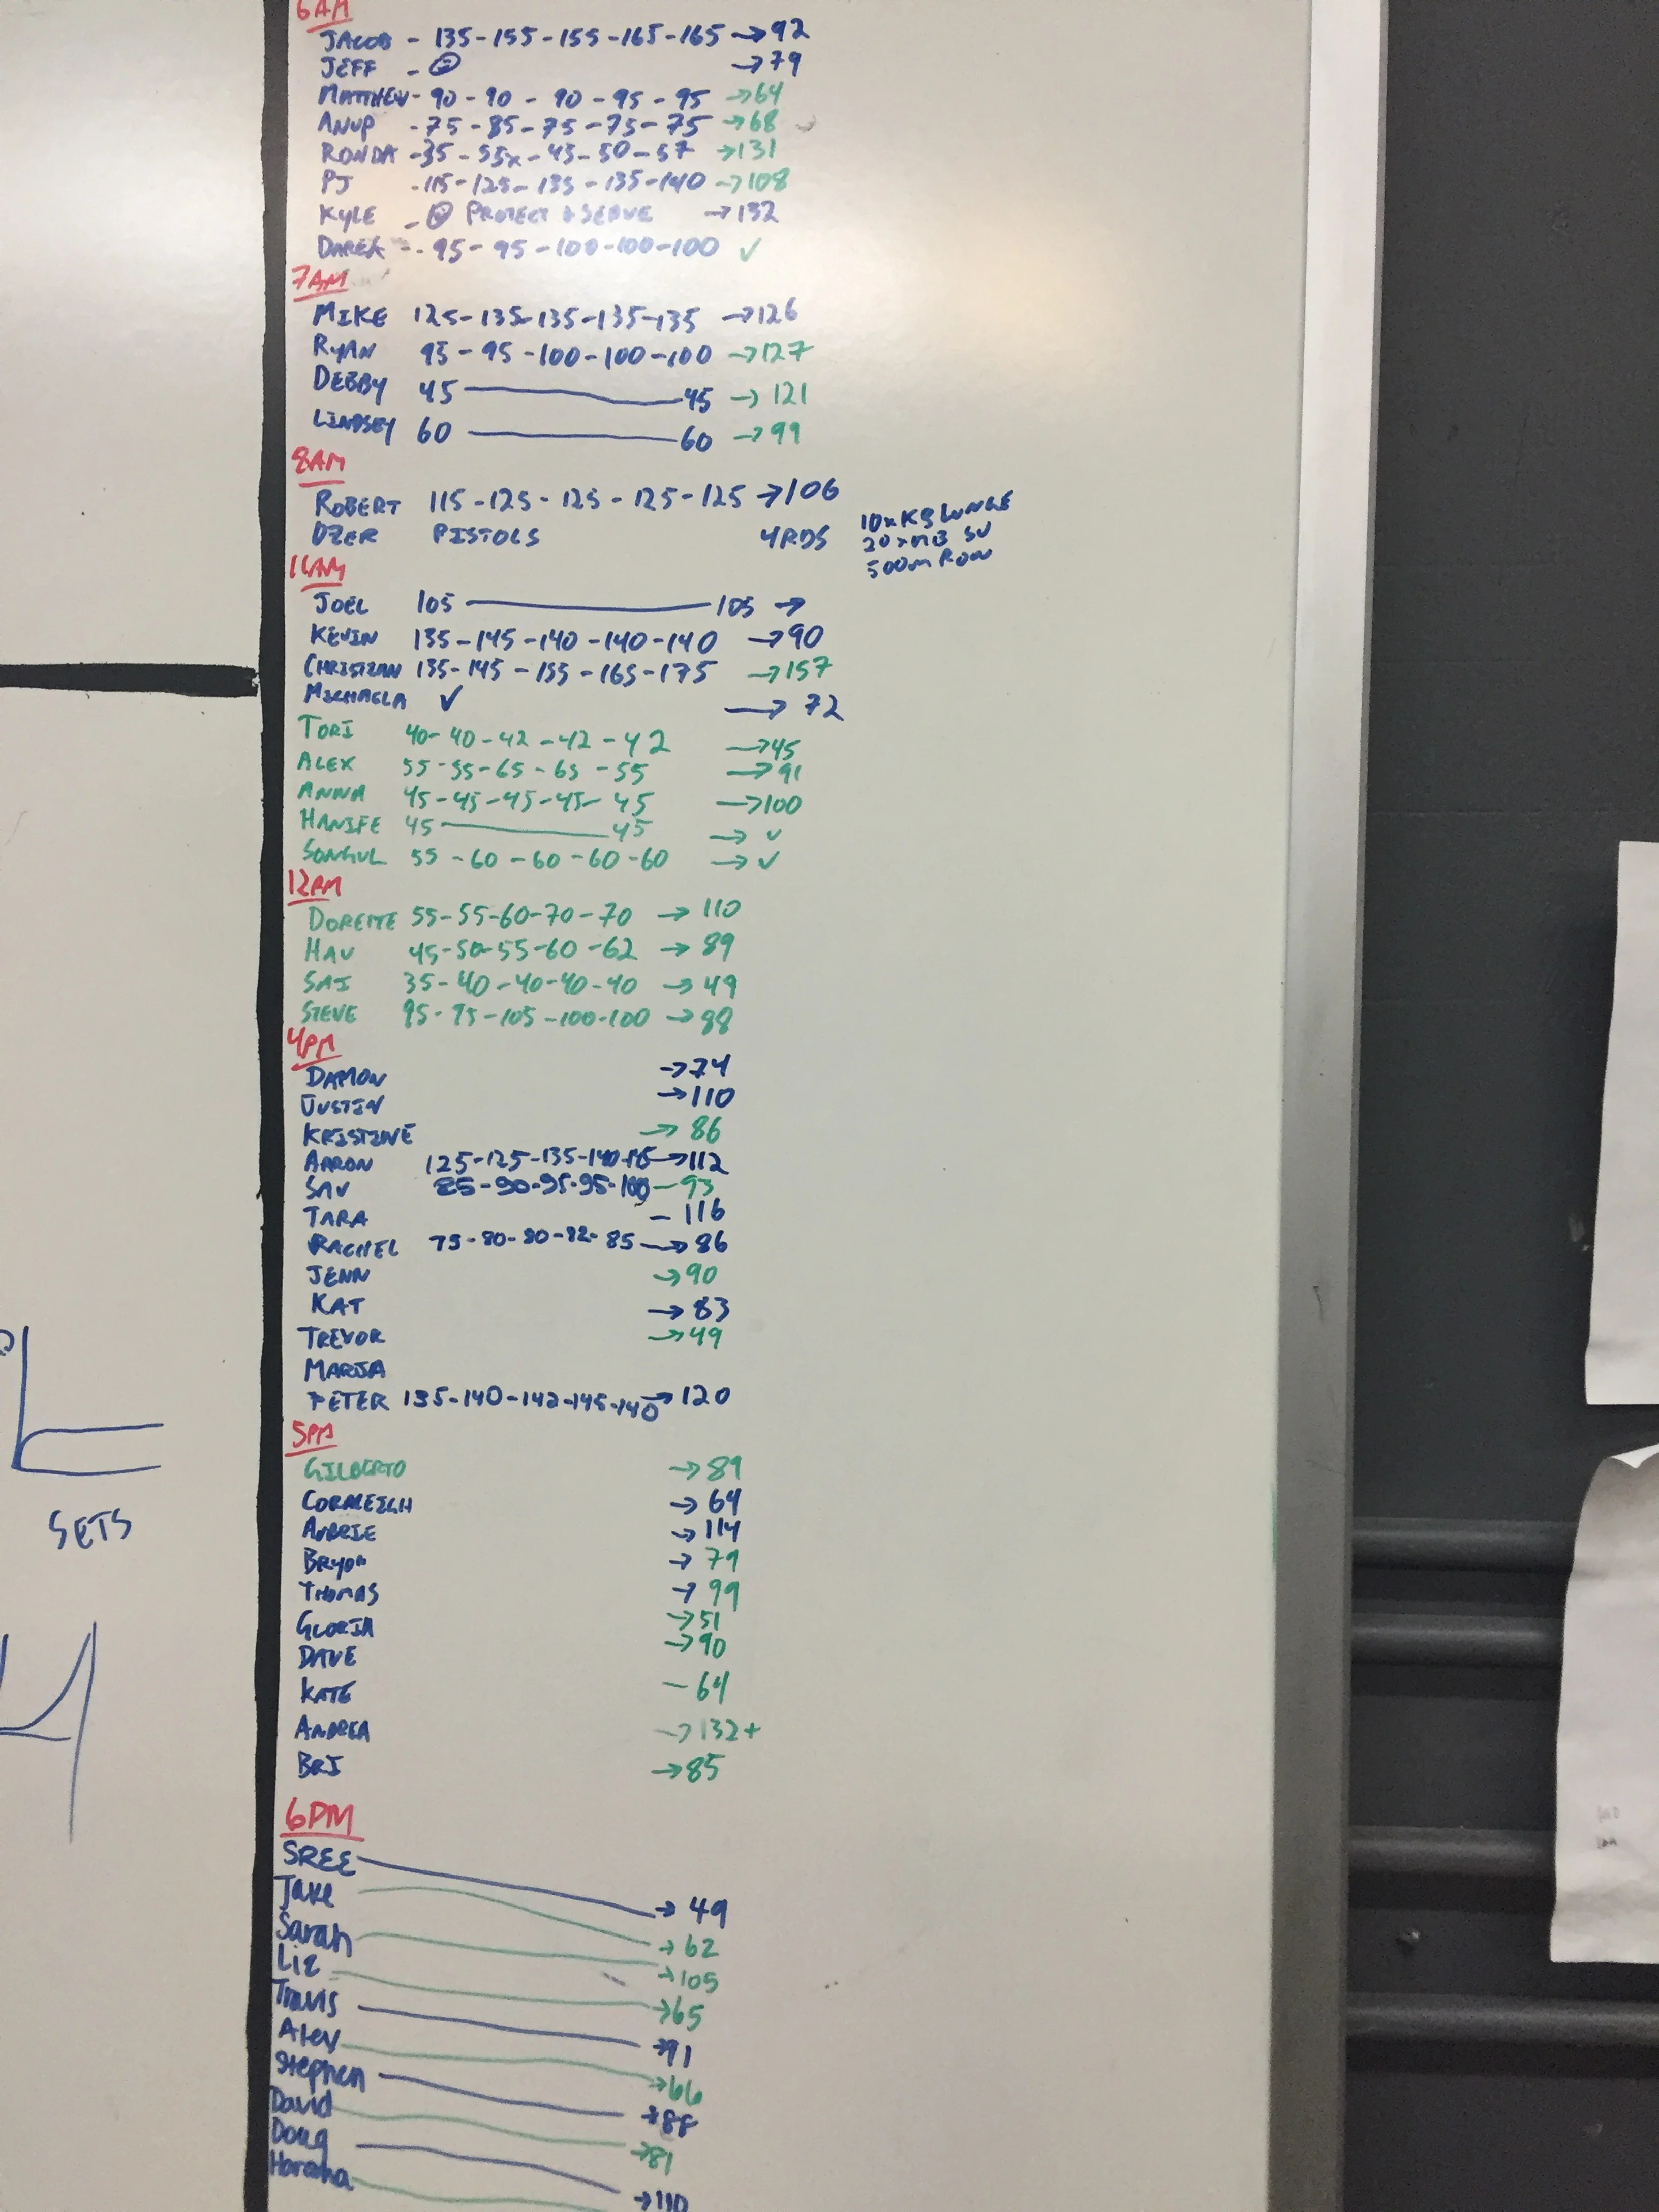 6AM
JACOB - 135-155-155-165-165 → 92
JEFF - → 79
MATTHEW - 90 - 90 - 90 - 95 - 95 → 64
ANUP - 75 - 85 - 75 - 75 - 75 → 68
RONDA - 35 - 55x - 45 - 50 - 57 → 131
PJ - 115 - 125 - 135 - 135 - 140 → 108
KYLE - PROTECT & SERVE → 132
DAREK - 95 - 95 - 100 - 100 - 100 ✓
7AM
MIKE 125-135-135-135-135 → 126
RYAN 95 - 95 - 100 - 100 - 100 → 127
DEBBY 45 — 45 → 121
LINDSEY 60 — 60 → 99
8AM
ROBERT 115 - 125 - 125 - 125 - 125 → 106
OZER PISTOLS 4RDS 10xKB LUNGE
20xMB SU
500m ROW
11AM
JOEL 105 — 105 →
KEVIN 135 - 145 - 140 - 140 - 140 → 90
CHRISTIAN 135 - 145 - 155 - 165 - 175 → 157
MICHAELA ✓ → 72
TORI 40 - 40 - 42 - 42 - 42 → 45
ALEX 55 - 55 - 65 - 65 - 55 → 91
ANNA 45 - 45 - 45 - 45 - 45 → 100
HANIFE 45 — 45 → ✓
SONGUL 55 - 60 - 60 - 60 - 60 → ✓
12AM
55-55-60-70-70 → 110
HAV 45-50-55-60-62 → 89
SAI 35-40-40-40-40 → 49
STEVE 95-95-105-100-100 → 98
4PM
DAMON → 74
JUSTIN → 110
KRISTINE → 86
AARON 125-125-135-140- → 112
SAV 85-90-95-95-100 - 93
TARA - 116
RACHEL 75-80-80-82-85 → 86
JENN → 90
KAT → 83
TREVOR → 49
MARIA
PETER 135-140-142-145-140 → 120
5PM
GILBERTO → 89
CORALEIGH → 64
AUBRIE → 114
BRYON → 79
THOMAS → 99
GLORIA → 51
DAVE → 90
KATE - 64
ANDREA → 132+
BRI → 85
6PM
SREE → 49
Jake → 62
Sarah → 105
Liz → 65
Travis → 91
Alex → 66
Stephen → 88
David → 81
Doug → 110
SETS